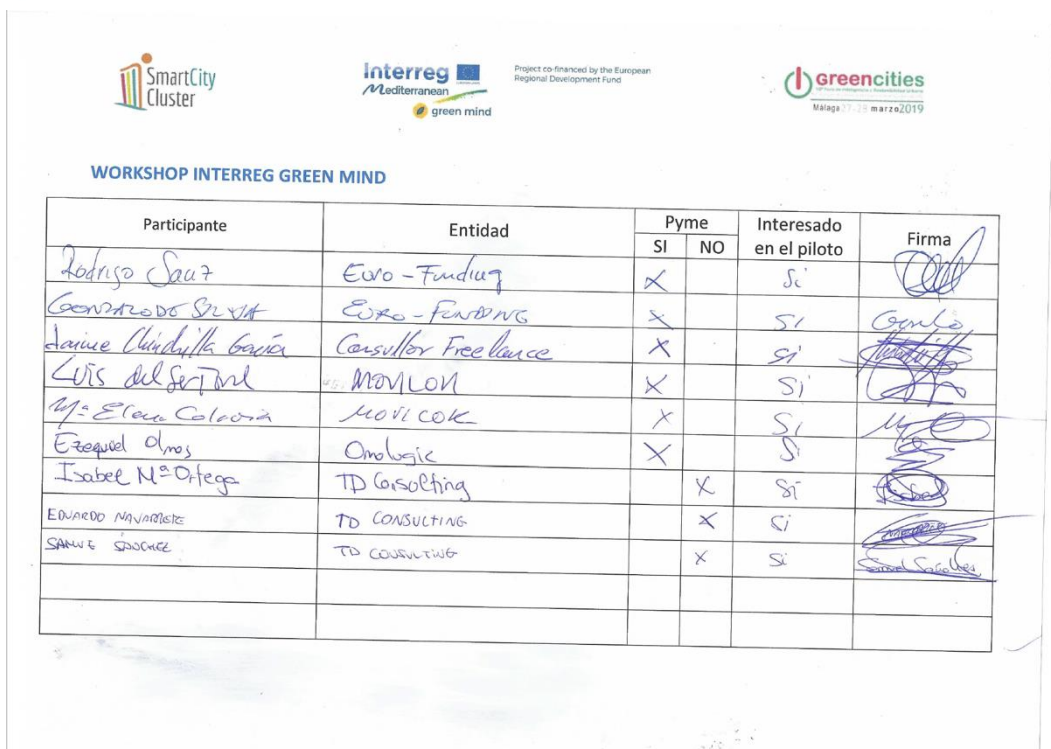 SmartCity
Cluster
Interreg
Mediterranean
green mind
Project co-financed by the European
Regional Development Fund
greencities
Málaga 27-28 marzo2019
WORKSHOP INTERREG GREEN MIND
Participante Entidad Pyme Interesado en el piloto Firma
SI NO
Rodrigo Sanz Euro-Funding X Si
GONZALO DE SILVA EURO-FUNDING X SI
Jaime Chinchilla García Consultor Freelance X si
Luis del X Si
Mª Elena X Si
Ezequiel Olmos Onologic X Si
Isabel Mª Ortega TD Consulting X Si
EDUARDO NAVARRETE TD CONSULTING X Si
SÁNCHEZ TD CONSULTING X Si Samuel Sánchez